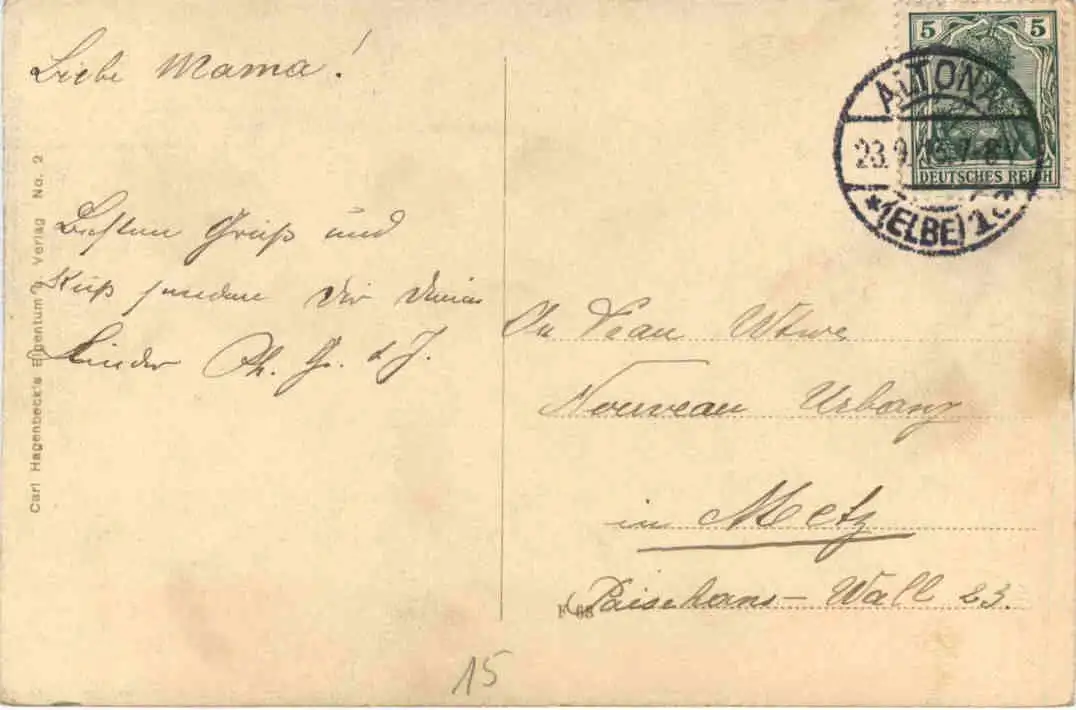 Liebe Mama!
Besten Gruß und
Kuß senden dir deine
Kinder Ph. G. & J.
Carl Hagenbeck's Eigentum u. Verlag No. 2
5 5
DEUTSCHES REICH
ALTONA
23.9. 7-8V
*(ELBE)1
Frau Wtwe
Nouveau Urbany
in Metz
Wall 23.
F 68
15